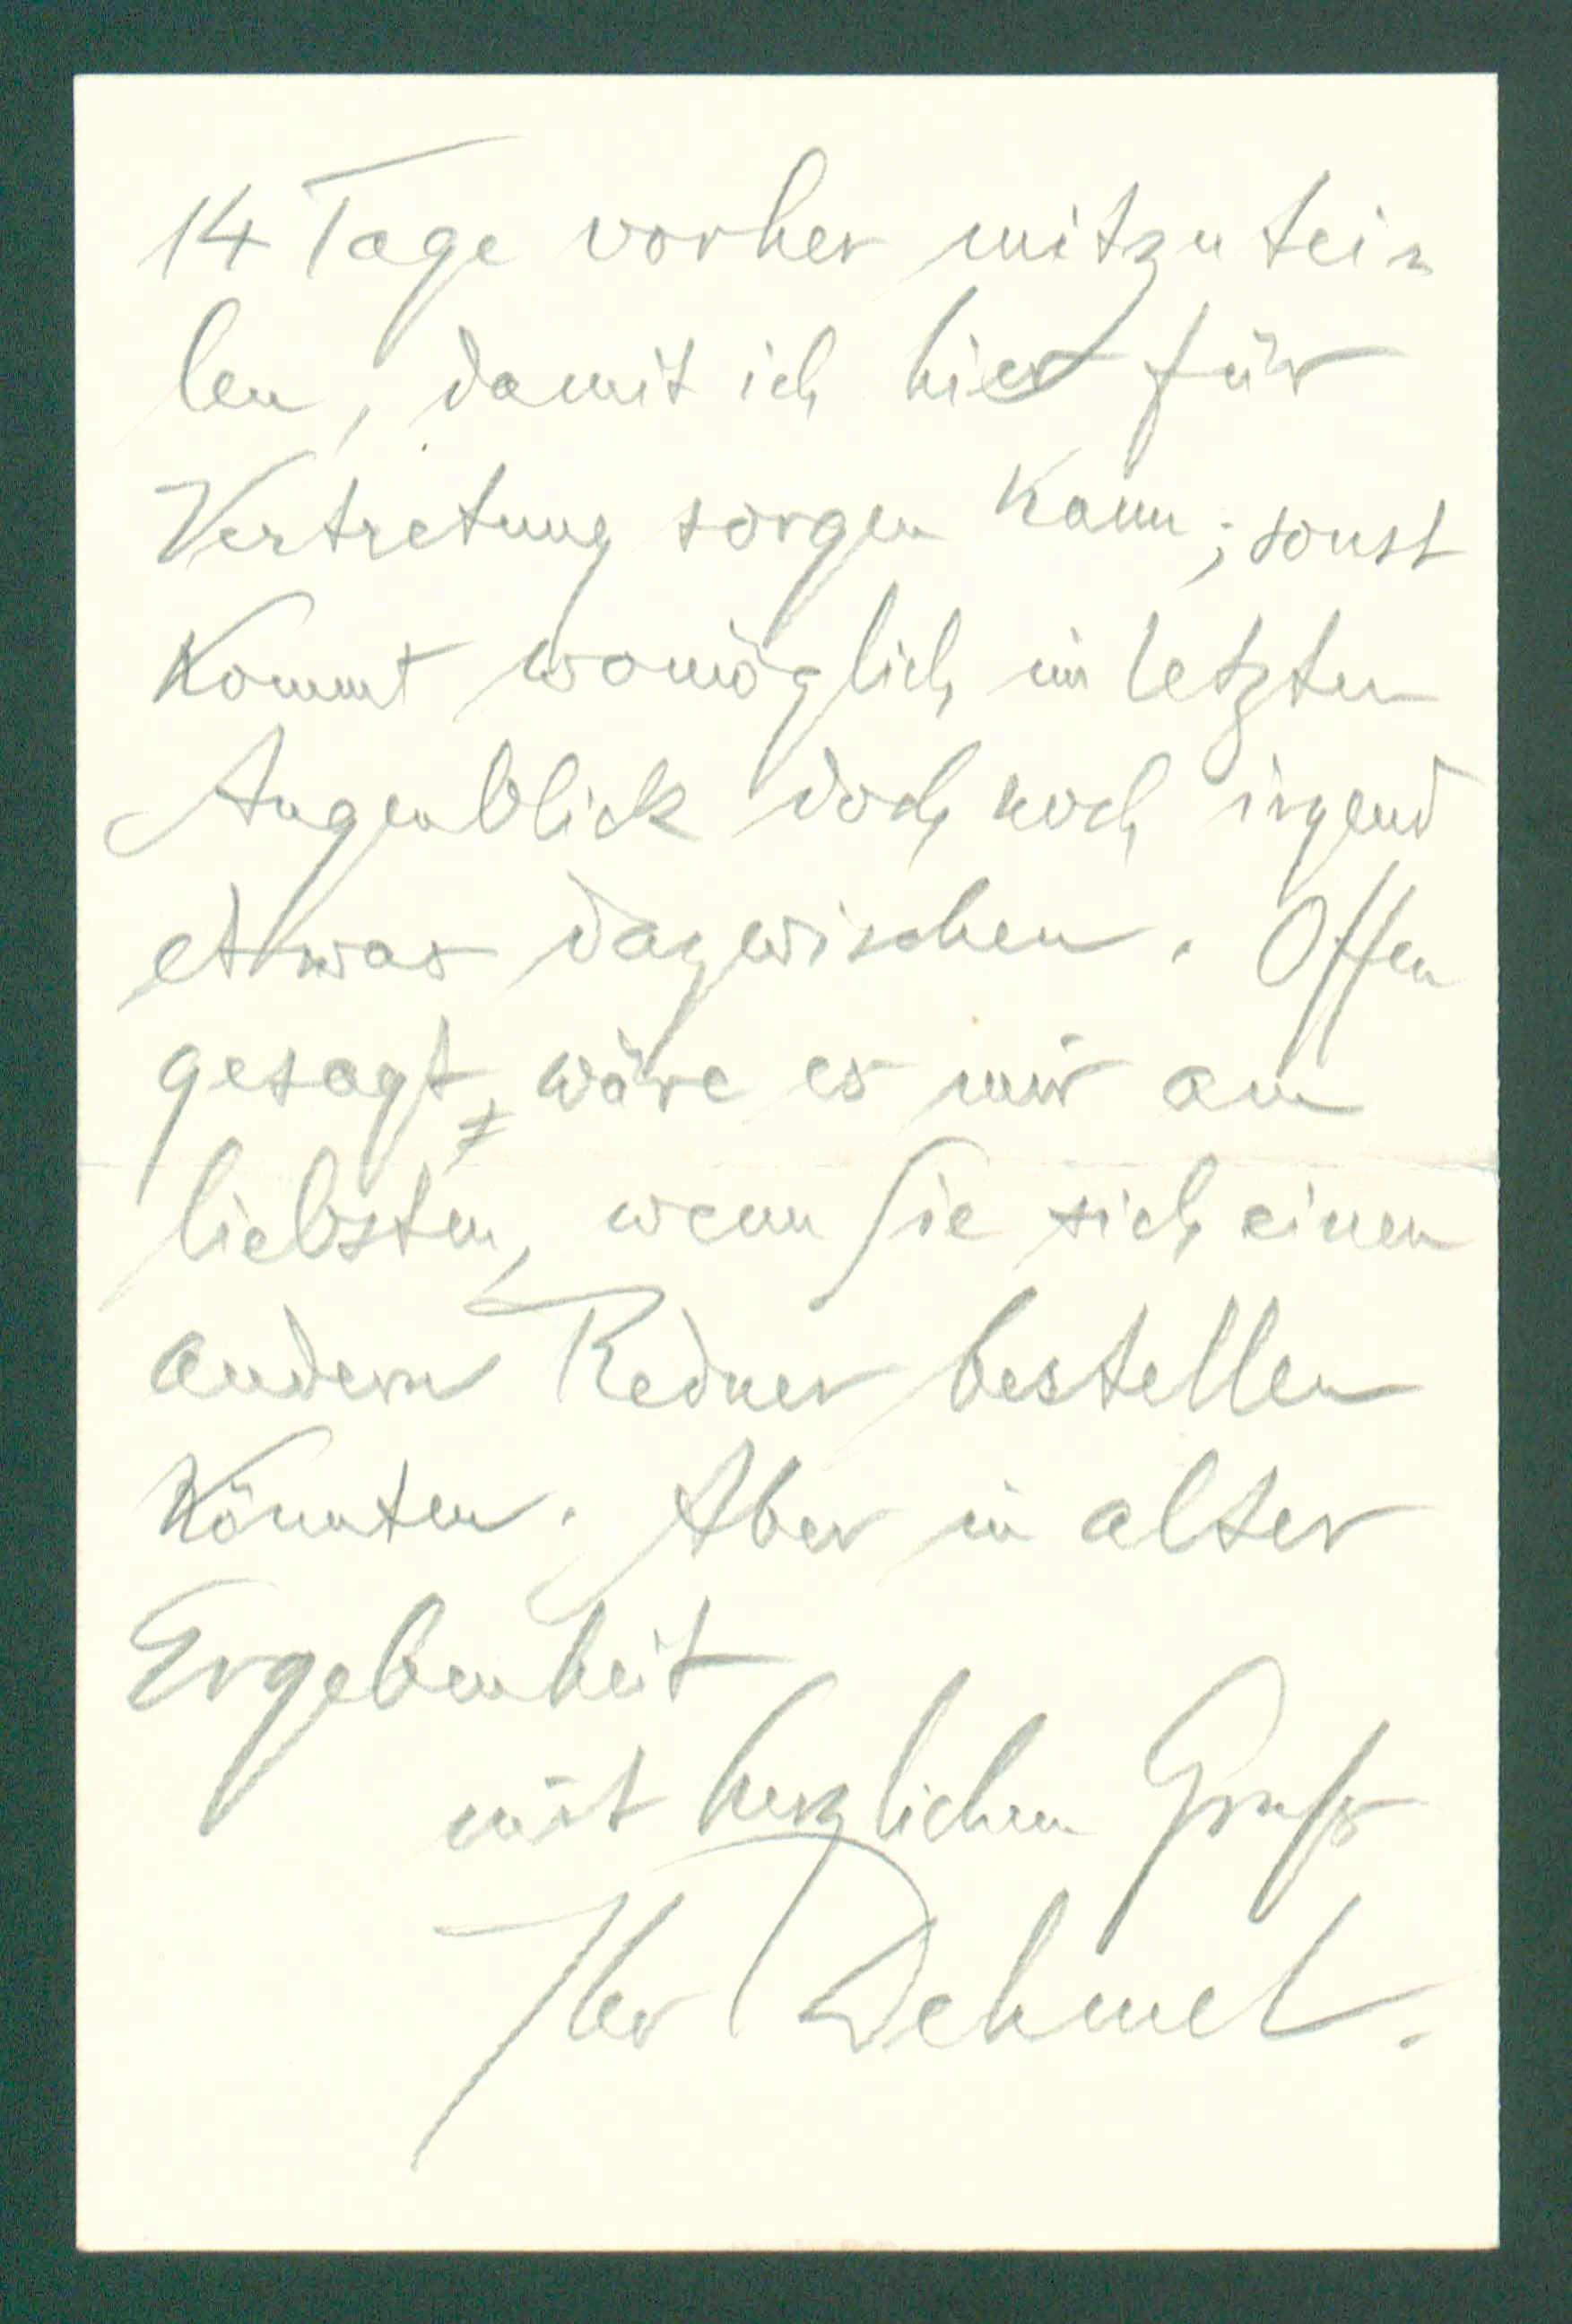 14 Tage vorher mitzutei-
len, damit ich hier für
Vertretung sorgen kann; sonst
kommt womöglich im letzten
Augenblick doch noch irgend
etwas dazwischen. Offen
gesagt, wäre es mir am
liebsten, wenn Sie sich einen
andern Redner bestellen
könnten. Aber in alter
Ergebenheit
mit herzlichem Gruß
Ihr Dehmel.